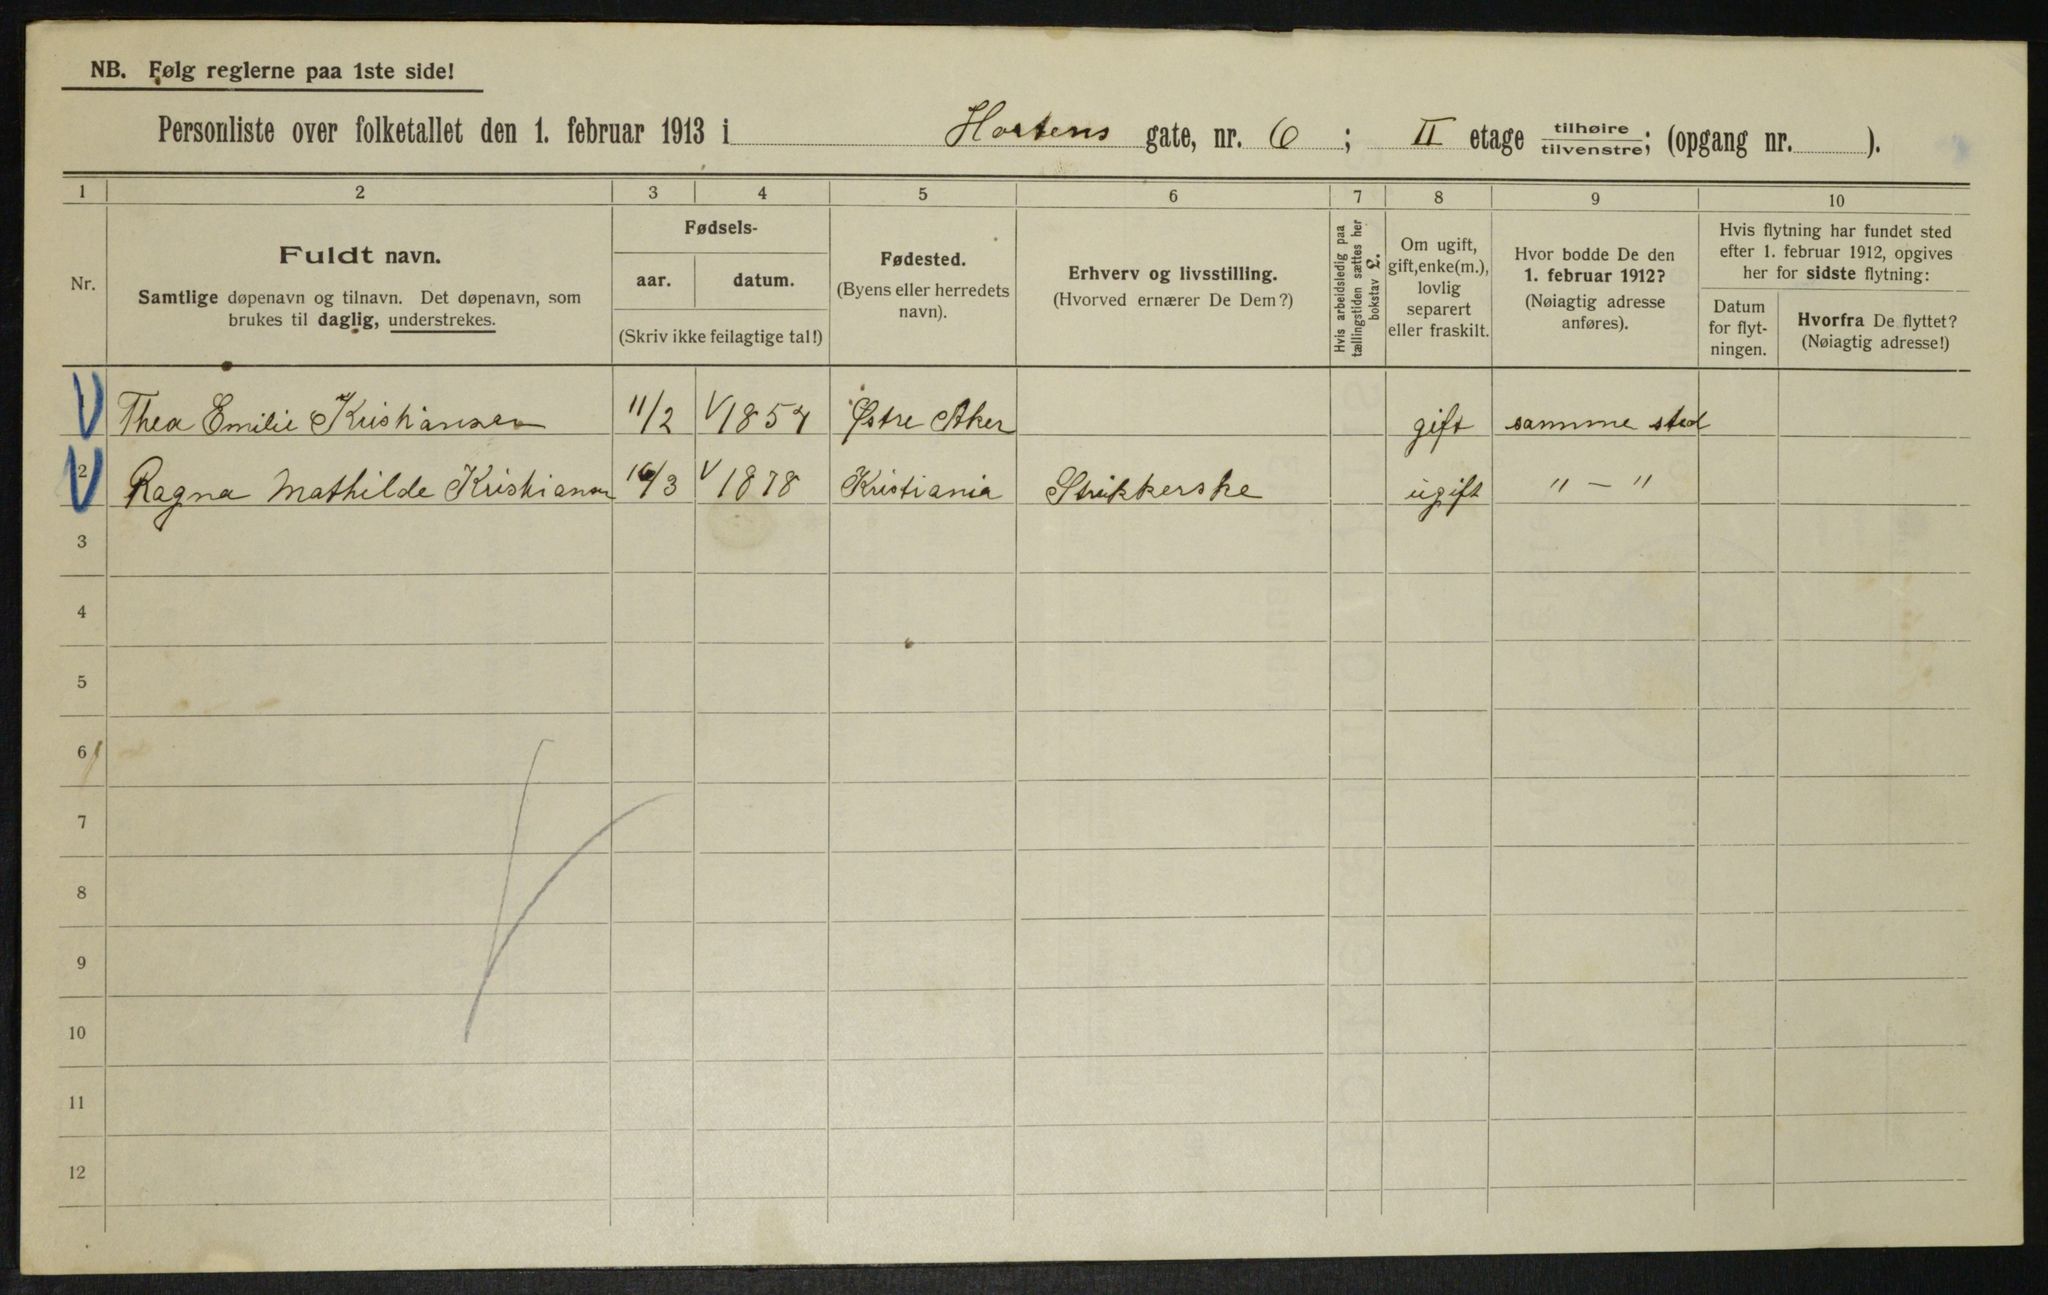 NB. Følg reglerne paa 1ste side!
Personliste over folketallet den 1. februar 1913 i Hortens gate, nr. 6; II etage tilhøire tilvenstre; (opgang nr. ).
1 2 3 4 5 6 7 8 9 10
Nr.
Fuldt navn.
Samtlige døpenavn og tilnavn. Det døpenavn, som
brukes til daglig, understrekes.
Fødsels-
aar. datum.
(Skriv ikke feilagtige tal!)
Fødested.
(Byens eller herredets
navn).
Erhverv og livsstilling.
(Hvorved ernærer De Dem?)
Hvis arbeidsledig paa
tællingstiden sættes her
bokstav L.
Om ugift,
gift, enke(m.),
lovlig
separert
eller fraskilt.
Hvor bodde De den
1. februar 1912?
(Nøiagtig adresse
anføres).
Hvis flytning har fundet sted
efter 1. februar 1912, opgives
her for sidste flytning:
Datum
for flyt-
ningen.
Hvorfra De flyttet?
(Nøiagtig adresse!)
1 Thea Emilie Kristiansen 11/2 1857 Østre Aker gift samme sted
2 Ragna Mathilde Kristiansen /3 1878 Kristiania Strikkerske ugift " - "
3
4
5
6
7
8
9
10
11
12